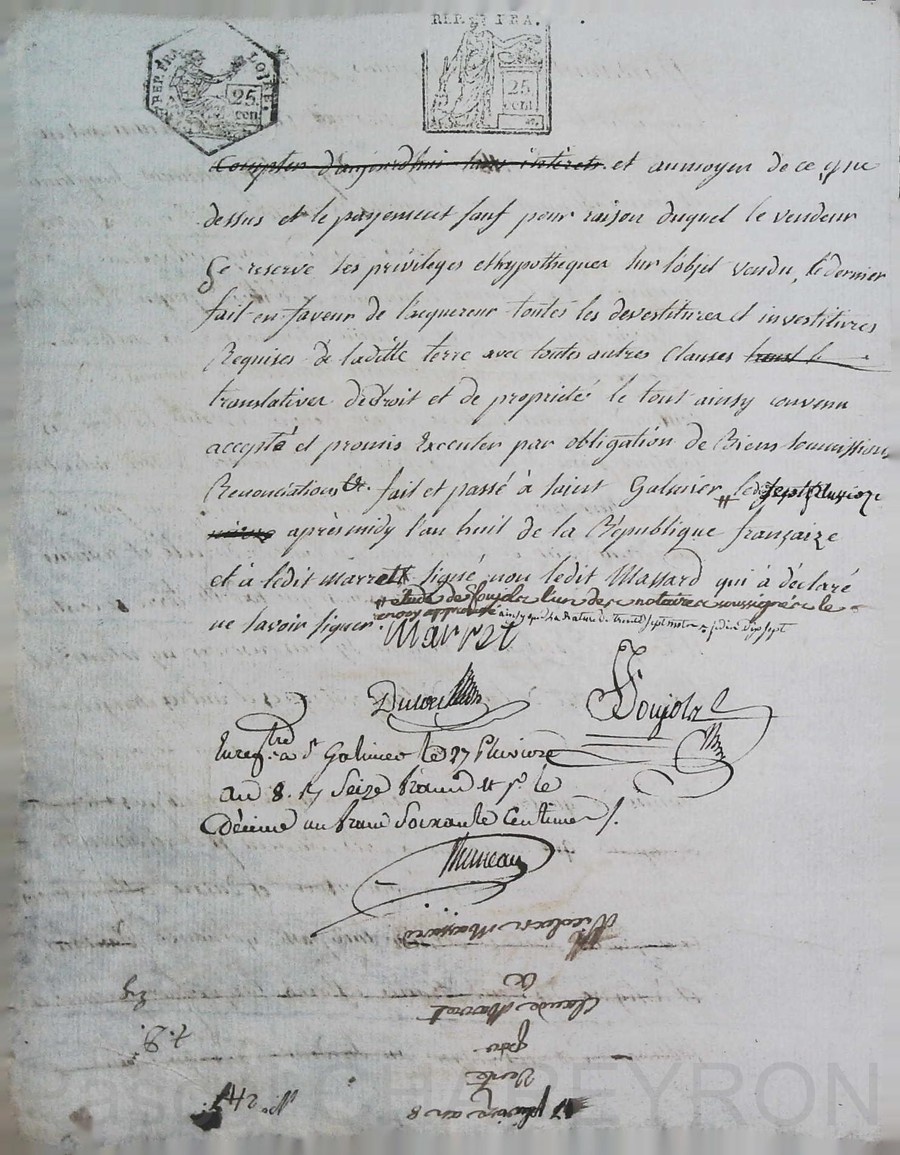 REP. FRA.
REP. FRA. LOIRE.
25
cen
25
cent
Compter d'aujourdhui sans intérêts et aumoyen de ce que
dessus et le payement sauf pour raison duquel le vendeur
se reserve ses privileges ethypotheques sur lobjet vendu, le dernier
fait en faveur de l'acquereur toutes les devestitures et investitures
Requises de laditte terre avec toutes autres clauses
translatives dedroit et de propriété le tout ainsy convenu
accepté et promis Executer par obligation de Biens soumissions
Renonciations &c. fait et passé à saint Galmier # le dix sept pluviose
après midy l'an huit de la République française
et à ledit marret signé non ledit Massard qui à déclaré
ne savoir signer.
# etude de Poujols l'un des notaires soussignés le
renvoy approuvé
Marret
Poujols
Enreg.tré a St Galmier le 27 Pluviose
an 8. R Seize francs et pr le
Décime un franc Soixante Centimes
Nicolas Massard
&
Claude Marret
pour
Vente
17 pluviose an 8
CHAPEYRON